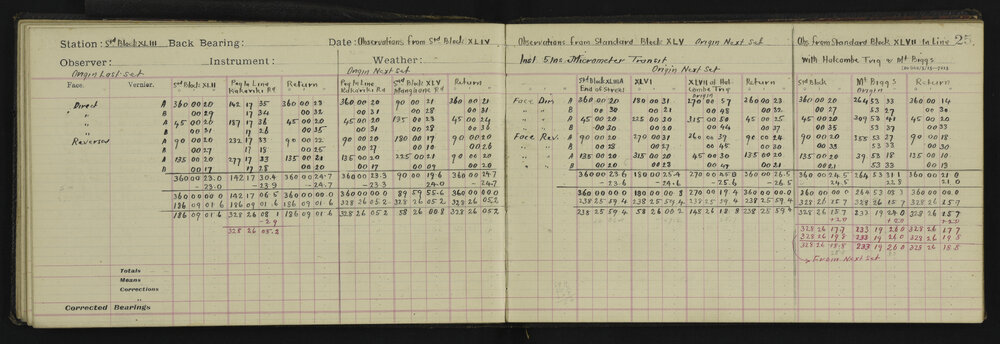 Station: Std Block XLIII Back Bearing: Date: Observations from Std Block XLIV Observations from Standard Block XLV Origin Next Set Obs from Standard Block XLVII to Line 25
Observer: Instrument: Weather: Inst 5 Ins Micrometer Transit with Holcombe Trig & Mt Biggs
Origin Last Set Origin Next Set Origin Next Set
Face. Vernier. Std Block XLII Peg to Line Rakaraki Rd Return Peg to line Rakaraki Rd Std Block XLV Mangaone Rd Return Std Block XLIIIA End of Street XLVI XLVII of Holcombe Trig Origin Return Std Block Mt Biggs Origin Return
Direct A 360 00 20 142 17 35 360 00 23 360 00 20 90 00 21 360 00 21 Face Dir A 360 00 20 180 00 31 270 00 57 360 00 23 360 00 20 264 53 33 360 00 14
" B 00 29 17 34 00 32 00 31 00 28 00 31 " " B 00 30 00 21 00 48 00 32 00 27 53 27 00 30
" A 45 00 20 187 17 36 45 00 20 45 00 20 135 00 23 45 00 24 " " A 45 00 20 225 00 30 315 00 50 45 00 25 45 00 20 309 53 41 45 00 20
" B 00 31 17 26 00 35 00 31 00 27 00 36 " " B 00 30 00 20 00 44 00 37 00 35 53 37 00 33
Reversed A 90 00 20 232 17 33 90 00 22 90 00 20 180 00 17 90 00 20 Face Rev A 90 00 20 270 00 31 90 00 24 90 00 20 53 27 90 00 18
B 00 27 17 18 00 25 00 27 00 10 00 26 " " B 00 28 00 27 00 45 00 30 00 25 53 33
A 135 00 20 277 17 33 135 00 21 135 00 20 225 00 21 90 00 20 " " A 135 00 20 315 00 20 45 00 30 135 00 21 135 00 20 39 53 18 135 00 10
B 00 17 17 28 00 20 " " B 00 21 53 33
360 00 23.0 142 17 30.4 360 00 24.7 360 00 23.3 90 00 19.6 360 00 24.7 360 00 23.6 180 00 25.4 270 00 360 00 26.5 360 00 24.5 264 53 31.1 360 00 21.0
– 23.0 – 23.9 – 24.7 23.3 24.0 – 24.7 – 23.6 – 24.6 – 25.6 – 26.5 24.5 22.8 21.0
360 00 00.0 142 17 06.5 360 00 00.0 360 00 00.0 89 59 55.6 360 00 00.0 360 00 00.0 180 00 270 00 19.4 360 00 00.0 360 00 00.0 264 53 08.3 360 00 00.0
186 09 01.6 186 09 01.6 186 09 01.6 328 26 05.2 328 26 05.2 328 26 05.2 238 25 59.4 238 25 59.4 238 25 59.4 238 25 59.4 328 26 15.7 328 26 15.7 328 26 15.7
186 09 01.6 328 26 08.1 186 09 01.6 328 26 05.2 58 26 00.8 328 26 05.2 238 25 59.4 58 26 00.2 148 26 18.8 238 25 59.4 328 26 15.7 233 19 24.0 328 26 15.7
– 2.9 + 2.0 + 2.0 + 2.0
328 26 05.2 328 26 17.7 233 19 26.0 328 26 17.7
328 26 19.8 233 19 26.0 328 26 19.8
328 26 18.8 233 19 26.0 328 26 18.8
From Next Set
Totals
Means
Corrections
"
Corrected Bearings